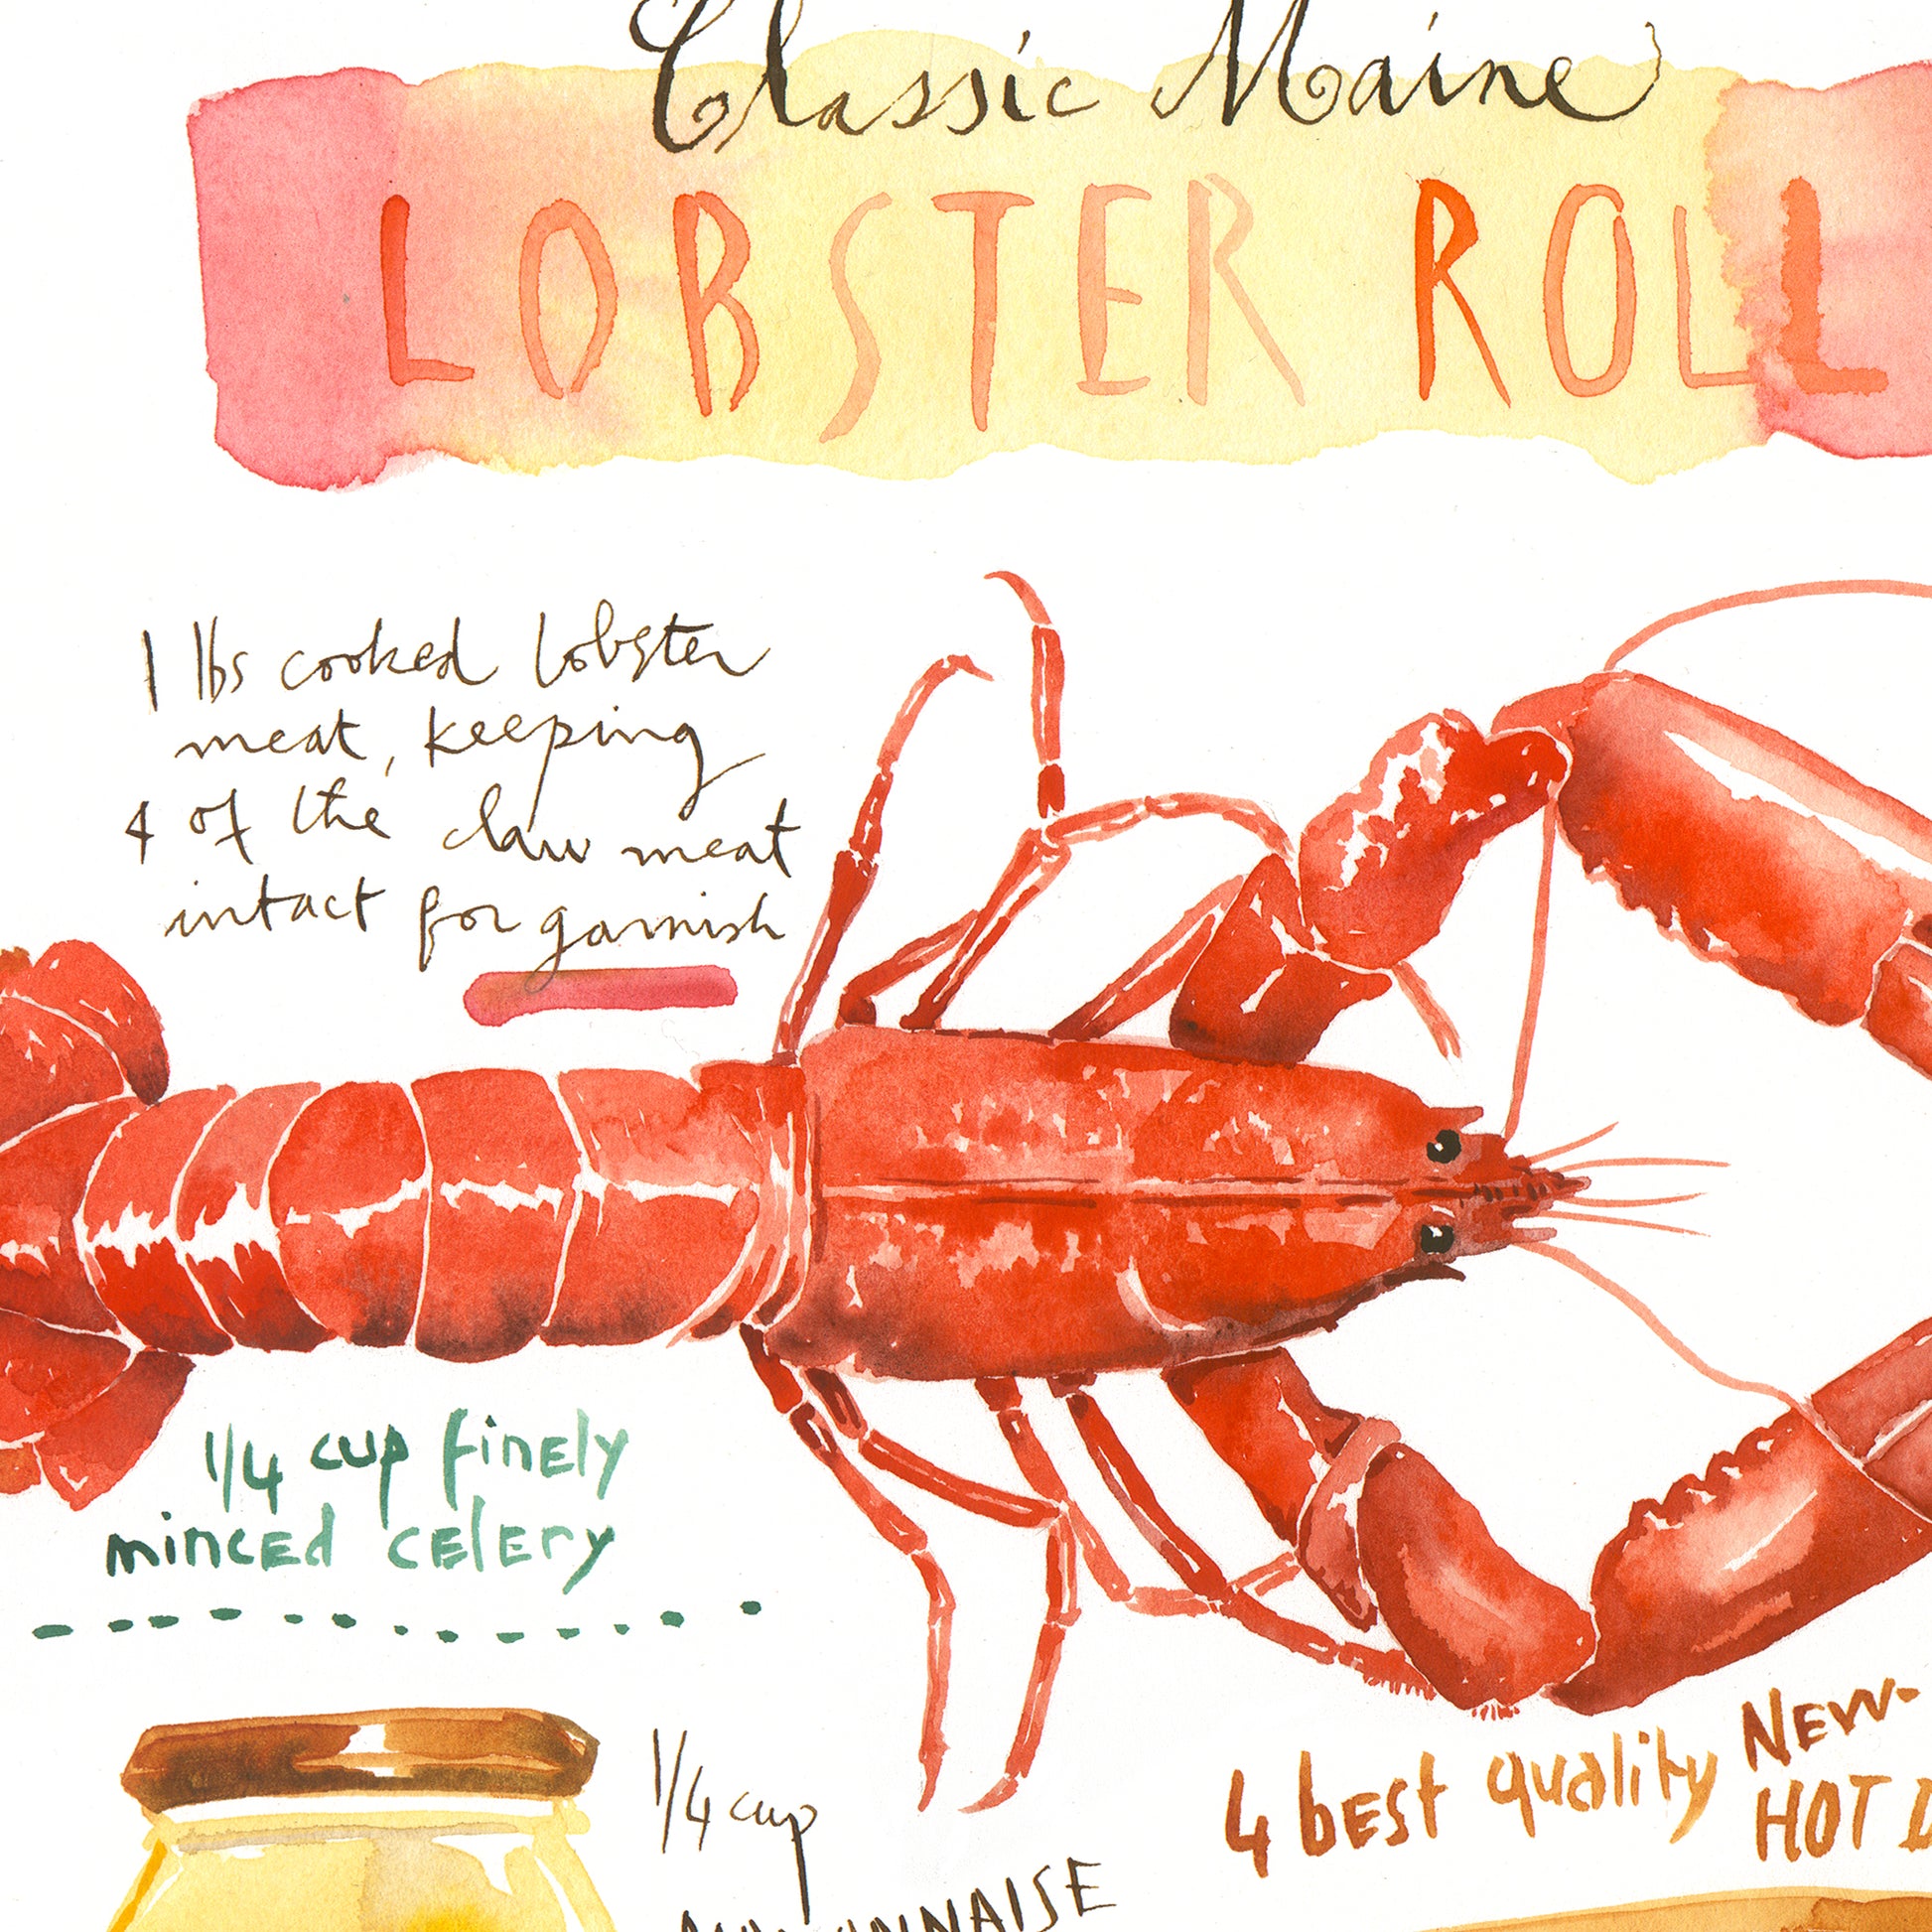 Classic Maine
LOBSTER ROLL
1 lbs cooked lobster
meat, keeping
4 of the claw meat
intact for garnish
1/4 cup finely
minced celery
1/4 cup
MAYONNAISE
4 best quality NEW-
HOT D